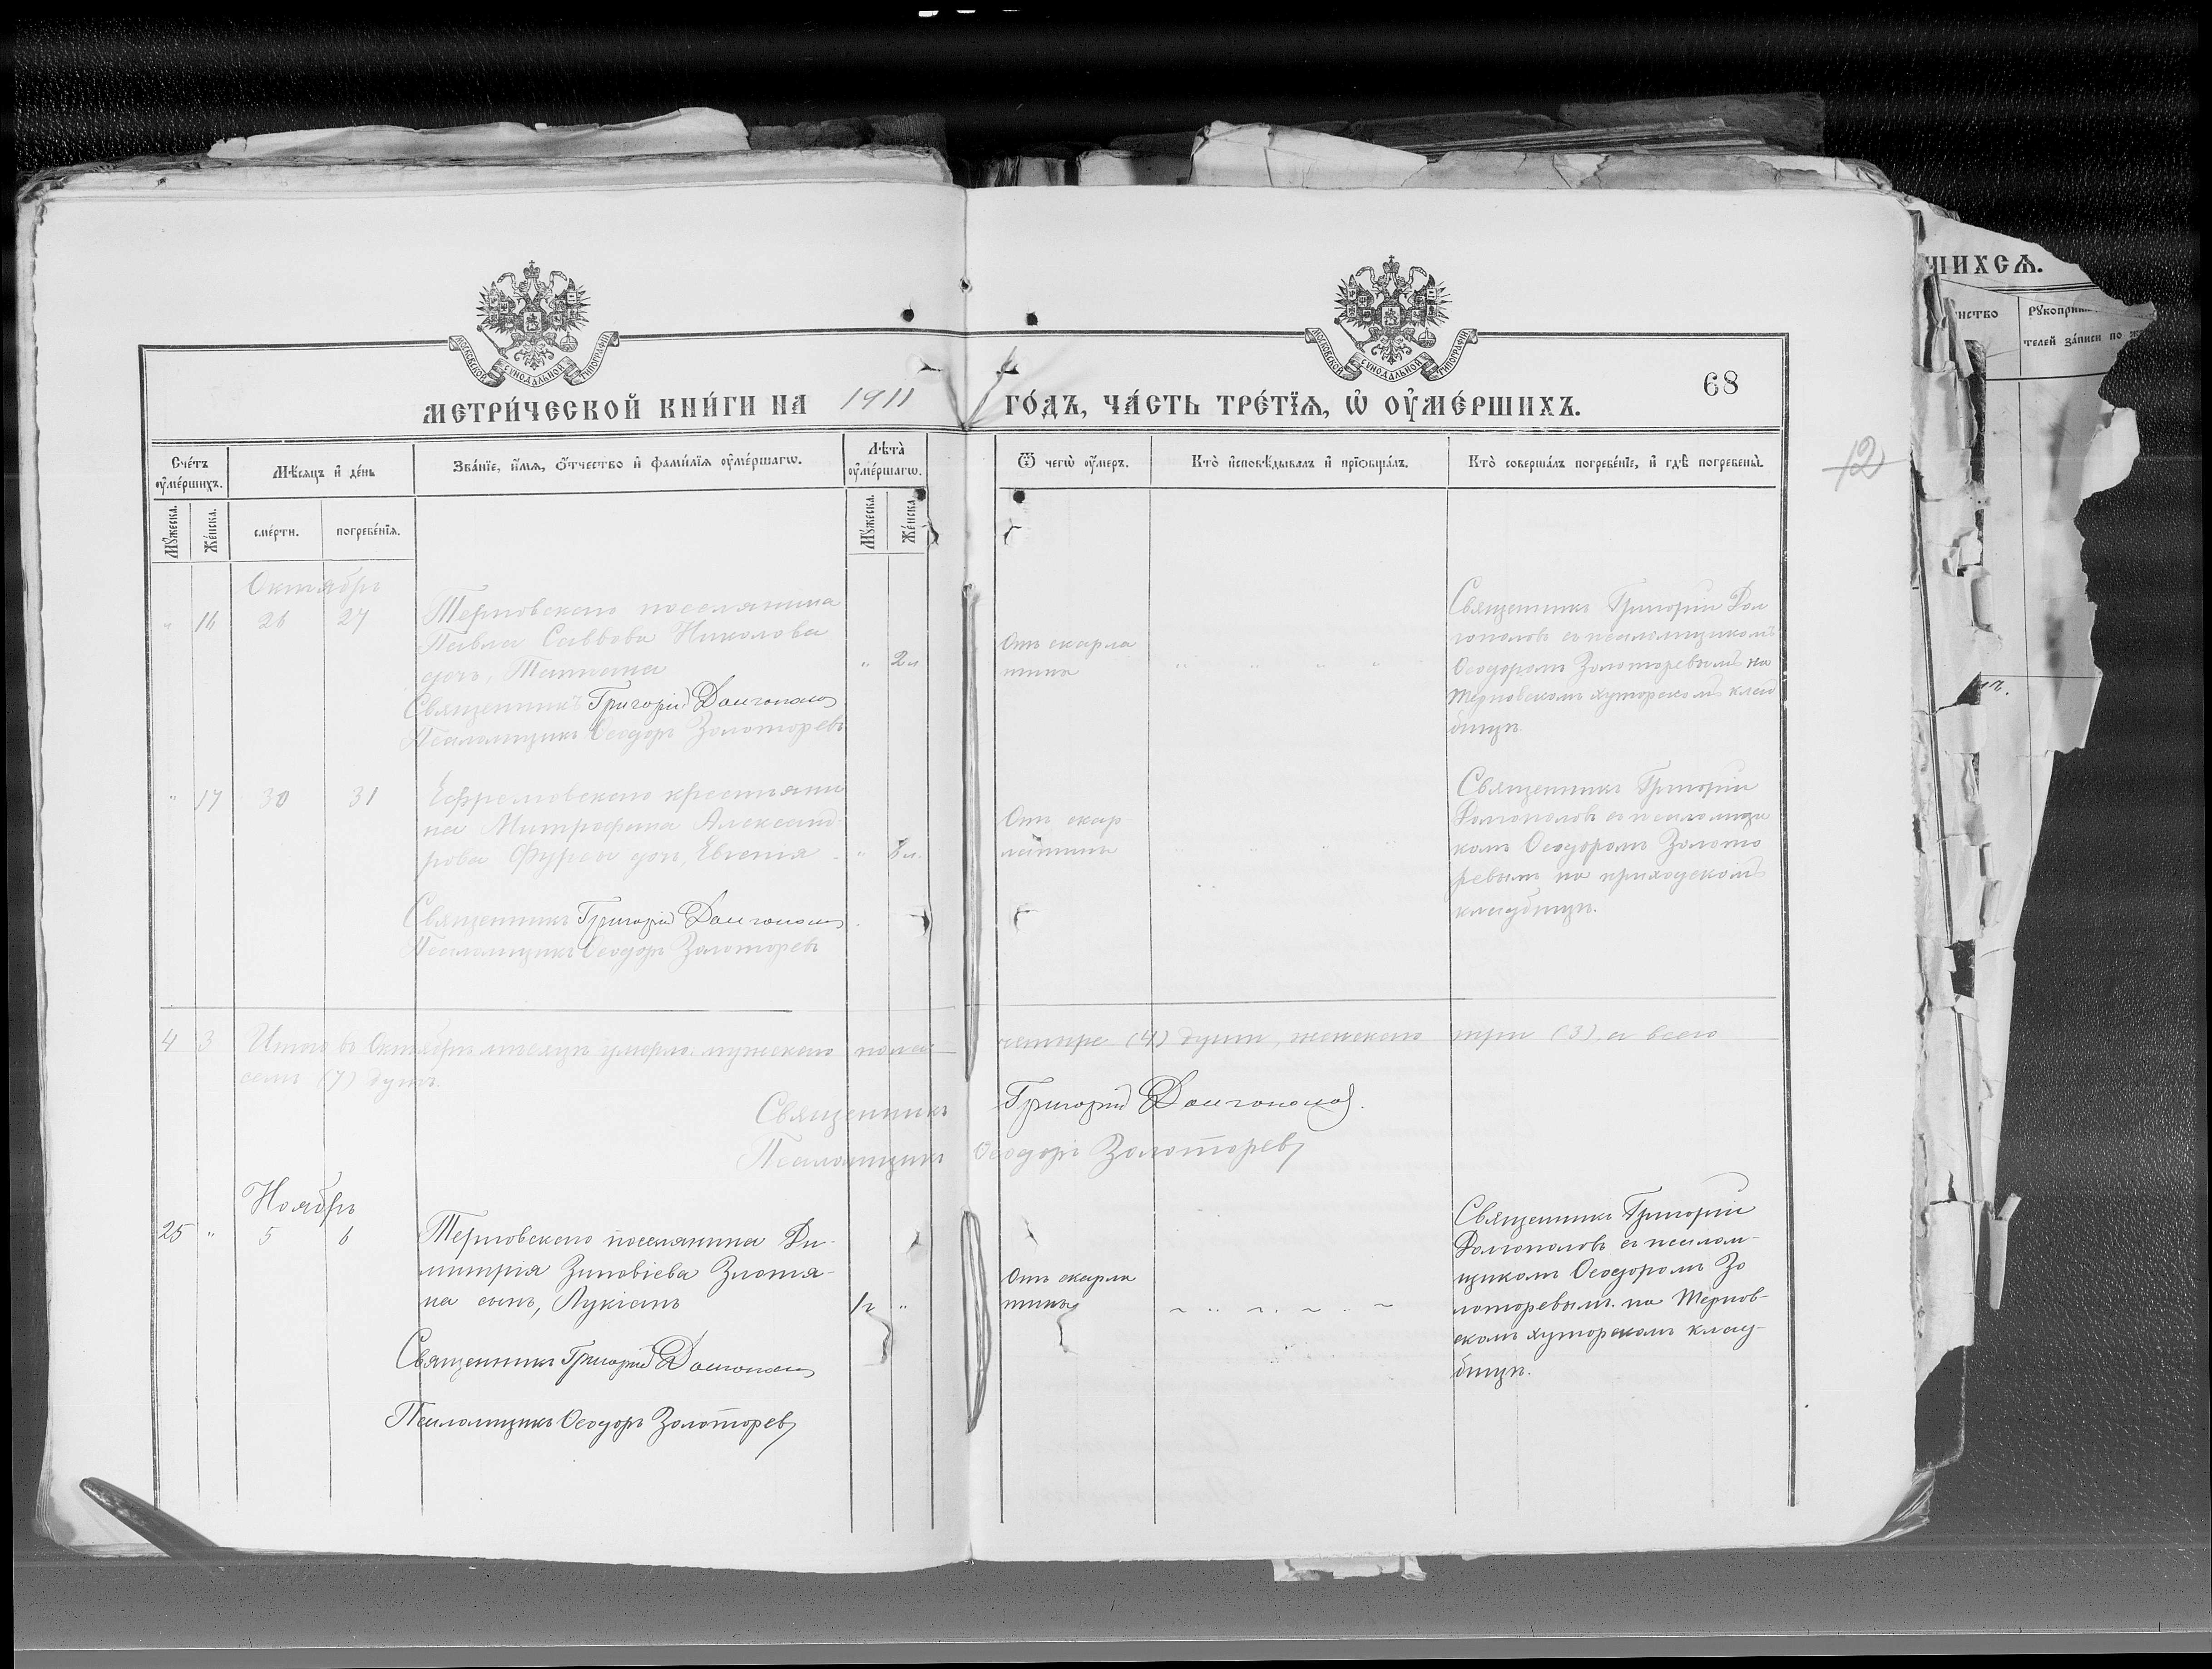 МОСКОВСКОЙ СУНОДАЛЬНОЙ ТИПОГРАФІИ
МОСКОВСКОЙ СУНОДАЛЬНОЙ ТИПОГРАФІИ
68
МЕТРИ́ЧЕСКОЙ КНИ́ГИ НА 1911 ГО́ДЪ, ЧА́СТЬ ТРЕ́ТЇѦ, Ѡ҆ ОУ҆МЕ́РШИХЪ.
12
Сче́тъ оу҆ме́ршихъ.
Мѣ́сяцъ и҆ де́нь
Зва́нїе, и҆́мѧ, ѻ҆́тчество и҆ фами́лїѧ оу҆ме́ршагѡ.
Лѣ́та оу҆ме́ршагѡ.
Ѿ чегѡ̀ оу҆́меръ.
Кто̀ и҆сповѣ́дывалъ и҆ прїѡбща́лъ.
Кто̀ соверша́лъ погребе́нїе, и҆ гдѣ̀ погребены̀.
Мꙋ́жеска.
Же́нска.
сме́рти.
погребе́нїѧ.
Мꙋ́жеска.
Же́нска.
Октябрь
" 16 26 27
Терновскаго поселянина
Павла Саввова Николова
дочь, Татіана
" 2 л
Священникъ Григорій Долгополов
Псаломщикъ Ѳеодоръ Золоторевъ
Отъ скарла
тины
Священникъ Григорій Дол
гополовъ съ псаломщикомъ
Ѳеодоромъ Золоторевымъ на
Терновскомъ хуторскомъ клад
бищѣ.
" 17 30 31
Ефремовскаго крестьяни
на Митрофана Александ
рова Фурсы дочь, Евгенія
" 8 л.
Священникъ Григорій Долгополов
Псаломщикъ Ѳеодоръ Золоторевъ
Отъ скар
латины
Священникъ Григорій
Долгополовъ съ псаломщи
комъ Ѳеодоромъ Золото
ревымъ на приходскомъ
кладбищѣ.
4 3 Итого въ Октябрѣ мѣсяцѣ умерло мужескаго пола четыре (4) души, женскаго три (3), а всего
семь (7) душъ.
Священникъ Григорій Долгополов.
Псаломщикъ Ѳеодоръ Золоторевъ
Ноябрь
25 " 5 6
Терновскаго поселянина Ди-
митрія Зиновіева Злотя-
на сынъ, Лукіанъ
1 г "
Священникъ Григорій Долгополов
Псаломщикъ Ѳеодоръ Золоторевъ
Отъ скарла
тины
Священникъ Григорій
Долгополовъ съ псалом-
щикомъ Ѳеодоромъ Зо
лоторевымъ на Тернов-
скомъ хуторскомъ клад-
бищѣ.
ШИХСѦ.
телей за́писи по